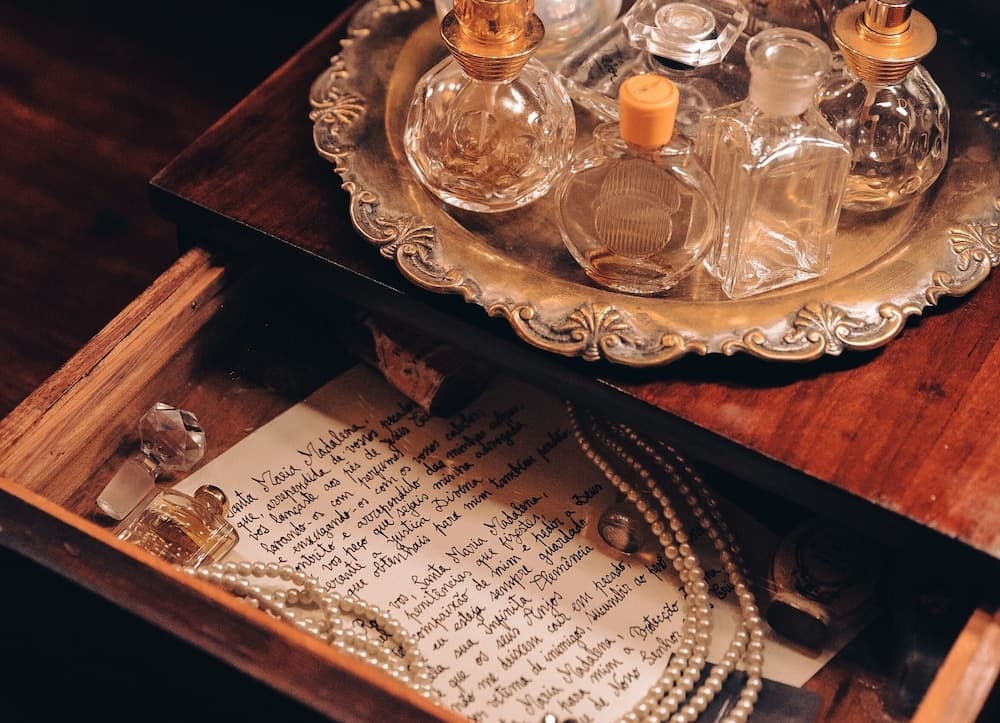 Santa Maria Madalena,
que, arrependida de vossos pecados
vos lançaste aos pés de Jesus
lavando-os com perfume
e enxugando-os com os vossos cabelos,
contrito e arrependido das minhas culpas
vos peço que sejais minha advogada
perante a Justiça Divina
que obtenhais para mim também perdão
vós, Santa Maria Madalena,
penitências que fizestes,
compaixão de mim e pedir a Deus
eu esteja sempre guardado
sua infinita Clemência
que os seus Anjos
não me deixem cair em pecado,
vítima de inimigos
Maria Madalena,
para mim a Proteção
de Nosso Senhor